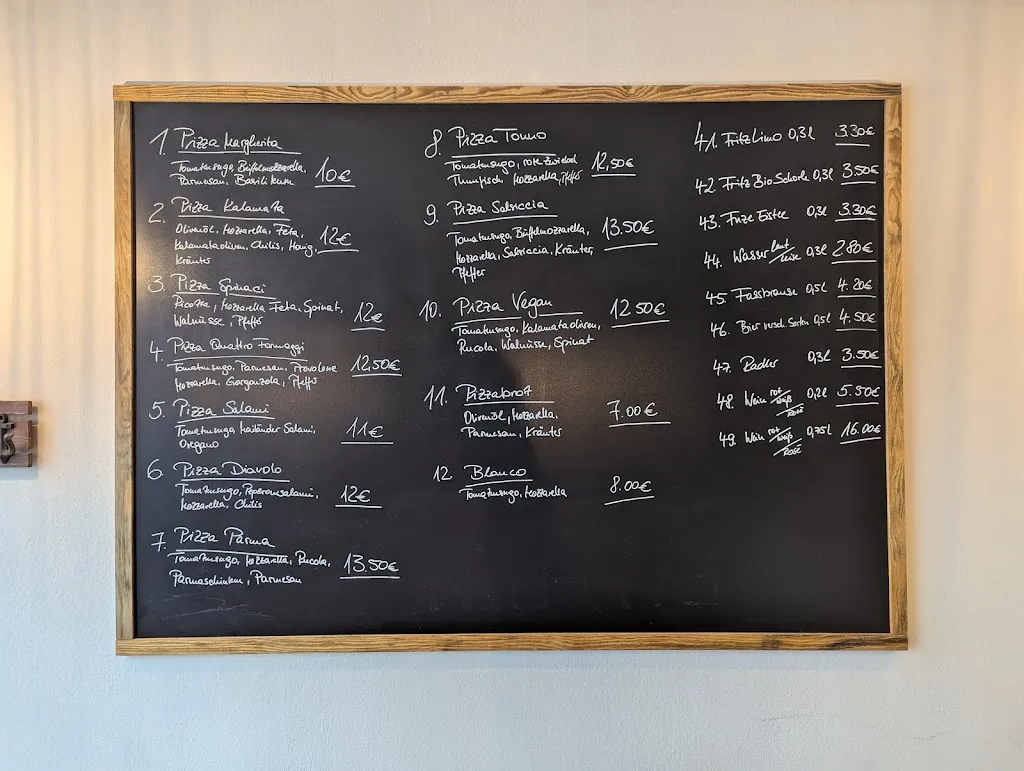 1. Pizza Margherita
Tomatensugo, Büffelmozzarella,
Parmesan, Basilikum 10€
2. Pizza Kalamata
Olivenöl, Mozzarella, Feta,
Kalamataoliven, Chilis, Honig, 12€
Kräuter
3. Pizza Spinaci
Ricotta, Mozzarella Feta, Spinat,
Walnüsse, Pfeffer 12€
4. Pizza Quattro Formaggi
Tomatensugo, Parmesan, Provolone 12,50€
Mozzarella, Gorgonzola, Pfeffer
5. Pizza Salami
Tomatensugo, Mailänder Salami, 11€
Oregano
6 Pizza Diavolo
Tomatensugo, Peperonisalami, 12€
Mozzarella, Chilis
7. Pizza Parma
Tomatensugo, Mozzarella, Rucola, 13.50€
Parmaschinken, Parmesan
8. Pizza Tonno
Tomatensugo, rote Zwiebel 12,50€
Thunfisch Mozzarella, Pfeffer
9. Pizza Salsiccia
Tomatensugo, Büffelmozzarella, 13.50€
Mozzarella, Salsiccia, Kräuter,
Pfeffer
10. Pizza Vegan 12.50€
Tomatensugo, Kalamataoliven,
Rucola, Walnüsse, Spinat
11. Pizzabrot
Olivenöl, Mozzarella, 7.00€
Parmesan, Kräuter
12 Blanco
Tomatensugo, Mozzarella 8.00€
41. Fritz Limo 0,3l 3.30€
42. Fritz Bio Schorle 0,3l 3.50€
43. Fuze Eistee 0,3l 3.30€
44. Wasser laut/leise 0,3l 2.80€
45. Fassbrause 0,5l 4.20€
46. Bier versch. Sorten 0,5l 4.50€
47. Radler 0,3l 3.50€
48. Wein rot/weiß/rosé 0,2l 5.50€
49. Wein rot/weiß/rosé 0,75l 16.00€